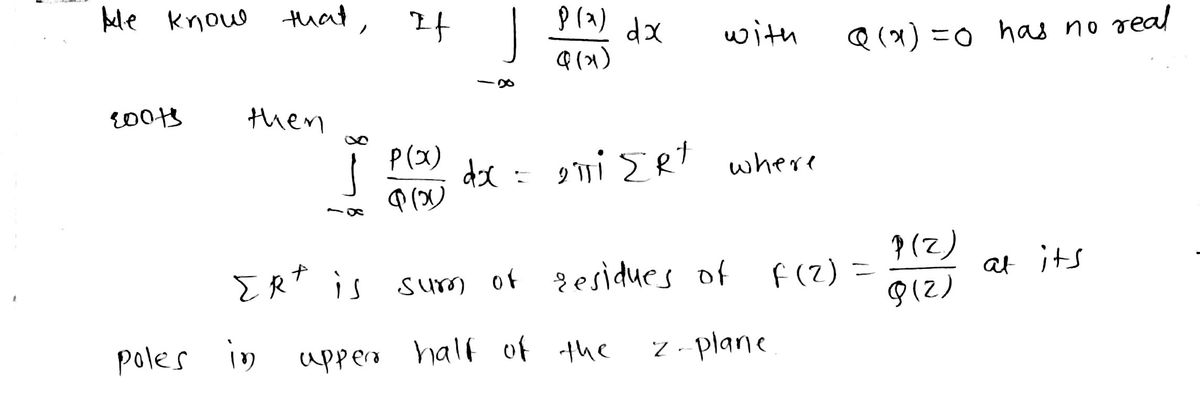 We know that, If ∫_{-∞} P(x)/Q(x) dx with Q(x) = 0 has no real
roots then
∫_{-∞}^{∞} P(x)/Q(x) dx = 2πi ΣR⁺ where
ΣR⁺ is sum of residues of f(z) = P(z)/Q(z) at its
poles in upper half of the z-plane.